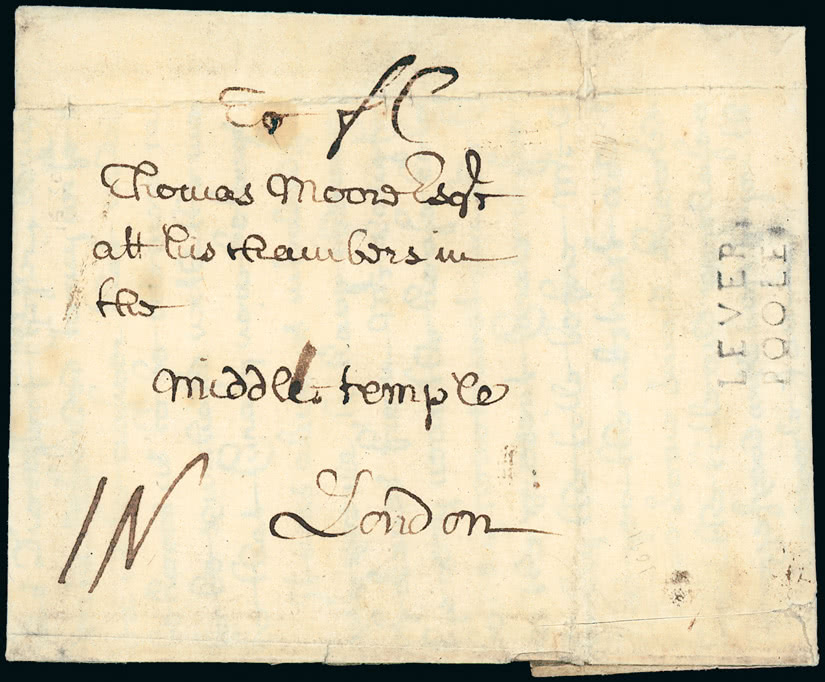 To
Thomas Moore Esqr
att his chambers in
the
Middle temple
London
IN
LEVER
POOLE